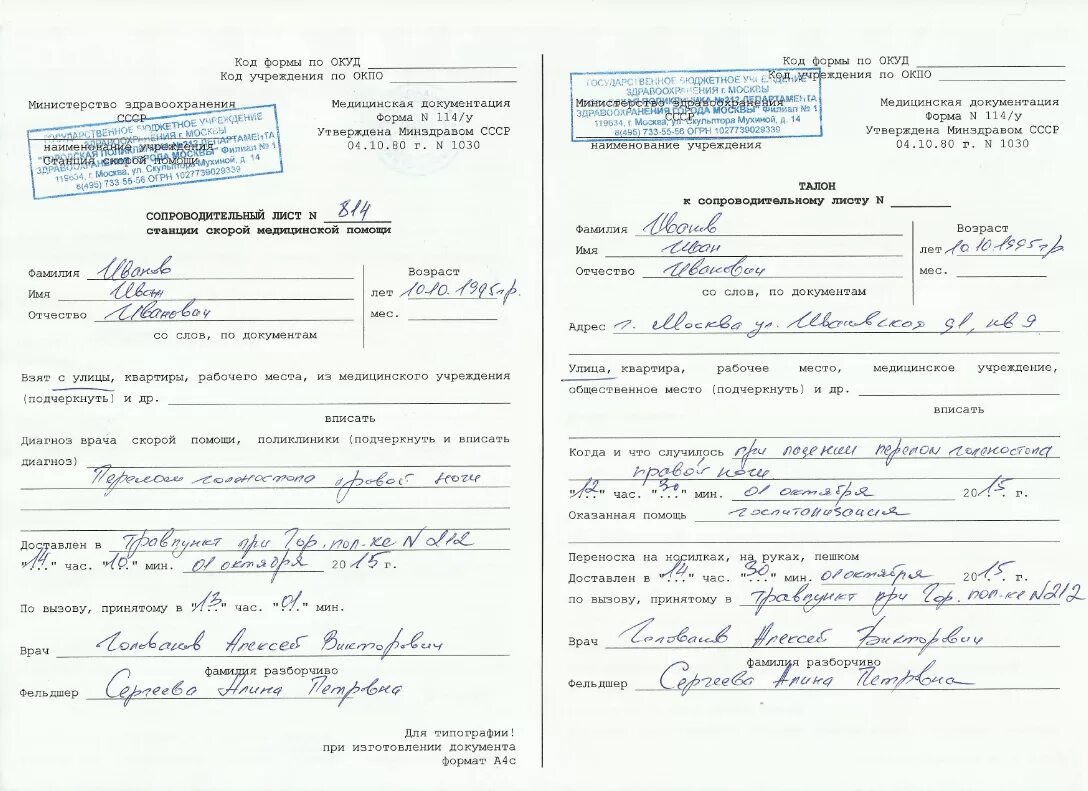 Код формы по ОКУД
Код учреждения по ОКПО
Министерство здравоохранения
СССР
наименование учреждения
Станция скорой помощи
ГОСУДАРСТВЕННОЕ БЮДЖЕТНОЕ УЧРЕЖДЕНИЕ
ЗДРАВООХРАНЕНИЯ г. МОСКВЫ
"ГОРОДСКАЯ ПОЛИКЛИНИКА №212 ДЕПАРТАМЕНТА
ЗДРАВООХРАНЕНИЯ ГОРОДА МОСКВЫ" Филиал № 1
119634, г. Москва, ул. Скульптора Мухиной, д. 14
8(495) 733-55-56 ОГРН 1027739029339
Медицинская документация
Форма N 114/у
Утверждена Минздравом СССР
04.10.80 г. N 1030
СОПРОВОДИТЕЛЬНЫЙ ЛИСТ N 814
станции скорой медицинской помощи
Фамилия Иванов
Имя Иван
Отчество Иванович
Возраст
лет 10.10.1995г.р.
мес.
со слов, по документам
Взят с улицы, квартиры, рабочего места, из медицинского учреждения
(подчеркнуть) и др.
вписать
Диагноз врача скорой помощи, поликлиники (подчеркнуть и вписать
диагноз)
Перелом голеностопа правой ноги
Доставлен в Травпункт при Гор. пол-ке N 212
"14" час. "10" мин. 01 октября 2015 г.
По вызову, принятому в "13" час. "01" мин.
Врач Голованов Алексей Викторович
фамилия разборчиво
Фельдшер Сергеева Алина Петровна
Для типографии!
при изготовлении документа
формат А4с
Код формы по ОКУД
Код учреждения по ОКПО
ГОСУДАРСТВЕННОЕ БЮДЖЕТНОЕ УЧРЕЖДЕНИЕ
ЗДРАВООХРАНЕНИЯ г. МОСКВЫ
"ГОРОДСКАЯ ПОЛИКЛИНИКА №212 ДЕПАРТАМЕНТА
ЗДРАВООХРАНЕНИЯ ГОРОДА МОСКВЫ" Филиал № 1
119634, г. Москва, ул. Скульптора Мухиной, д. 14
8(495) 733-55-56 ОГРН 1027739029339
Министерство здравоохранения
СССР
наименование учреждения
Медицинская документация
Форма N 114/у
Утверждена Минздравом СССР
04.10.80 г. N 1030
ТАЛОН
к сопроводительному листу N
Фамилия Иванов
Имя Иван
Отчество Иванович
Возраст
лет 10.10.1995г.р.
мес.
со слов, по документам
Адрес г. Москва ул. Ивановская д1, кв 9
Улица, квартира, рабочее место, медицинское учреждение,
общественное место (подчеркнуть) и др.
вписать
Когда и что случилось при падении перелом голеностопа
правой ноги
"12" час. "30" мин. 01 октября 2015 г.
Оказанная помощь госпитализация
Переноска на носилках, на руках, пешком
Доставлен в "14" час. "30" мин. 01 октября 2015 г.
по вызову, принятому в Травпункт при Гор. пол-ке N 212
Врач Голованов Алексей Викторович
фамилия разборчиво
Фельдшер Сергеева Алина Петровна